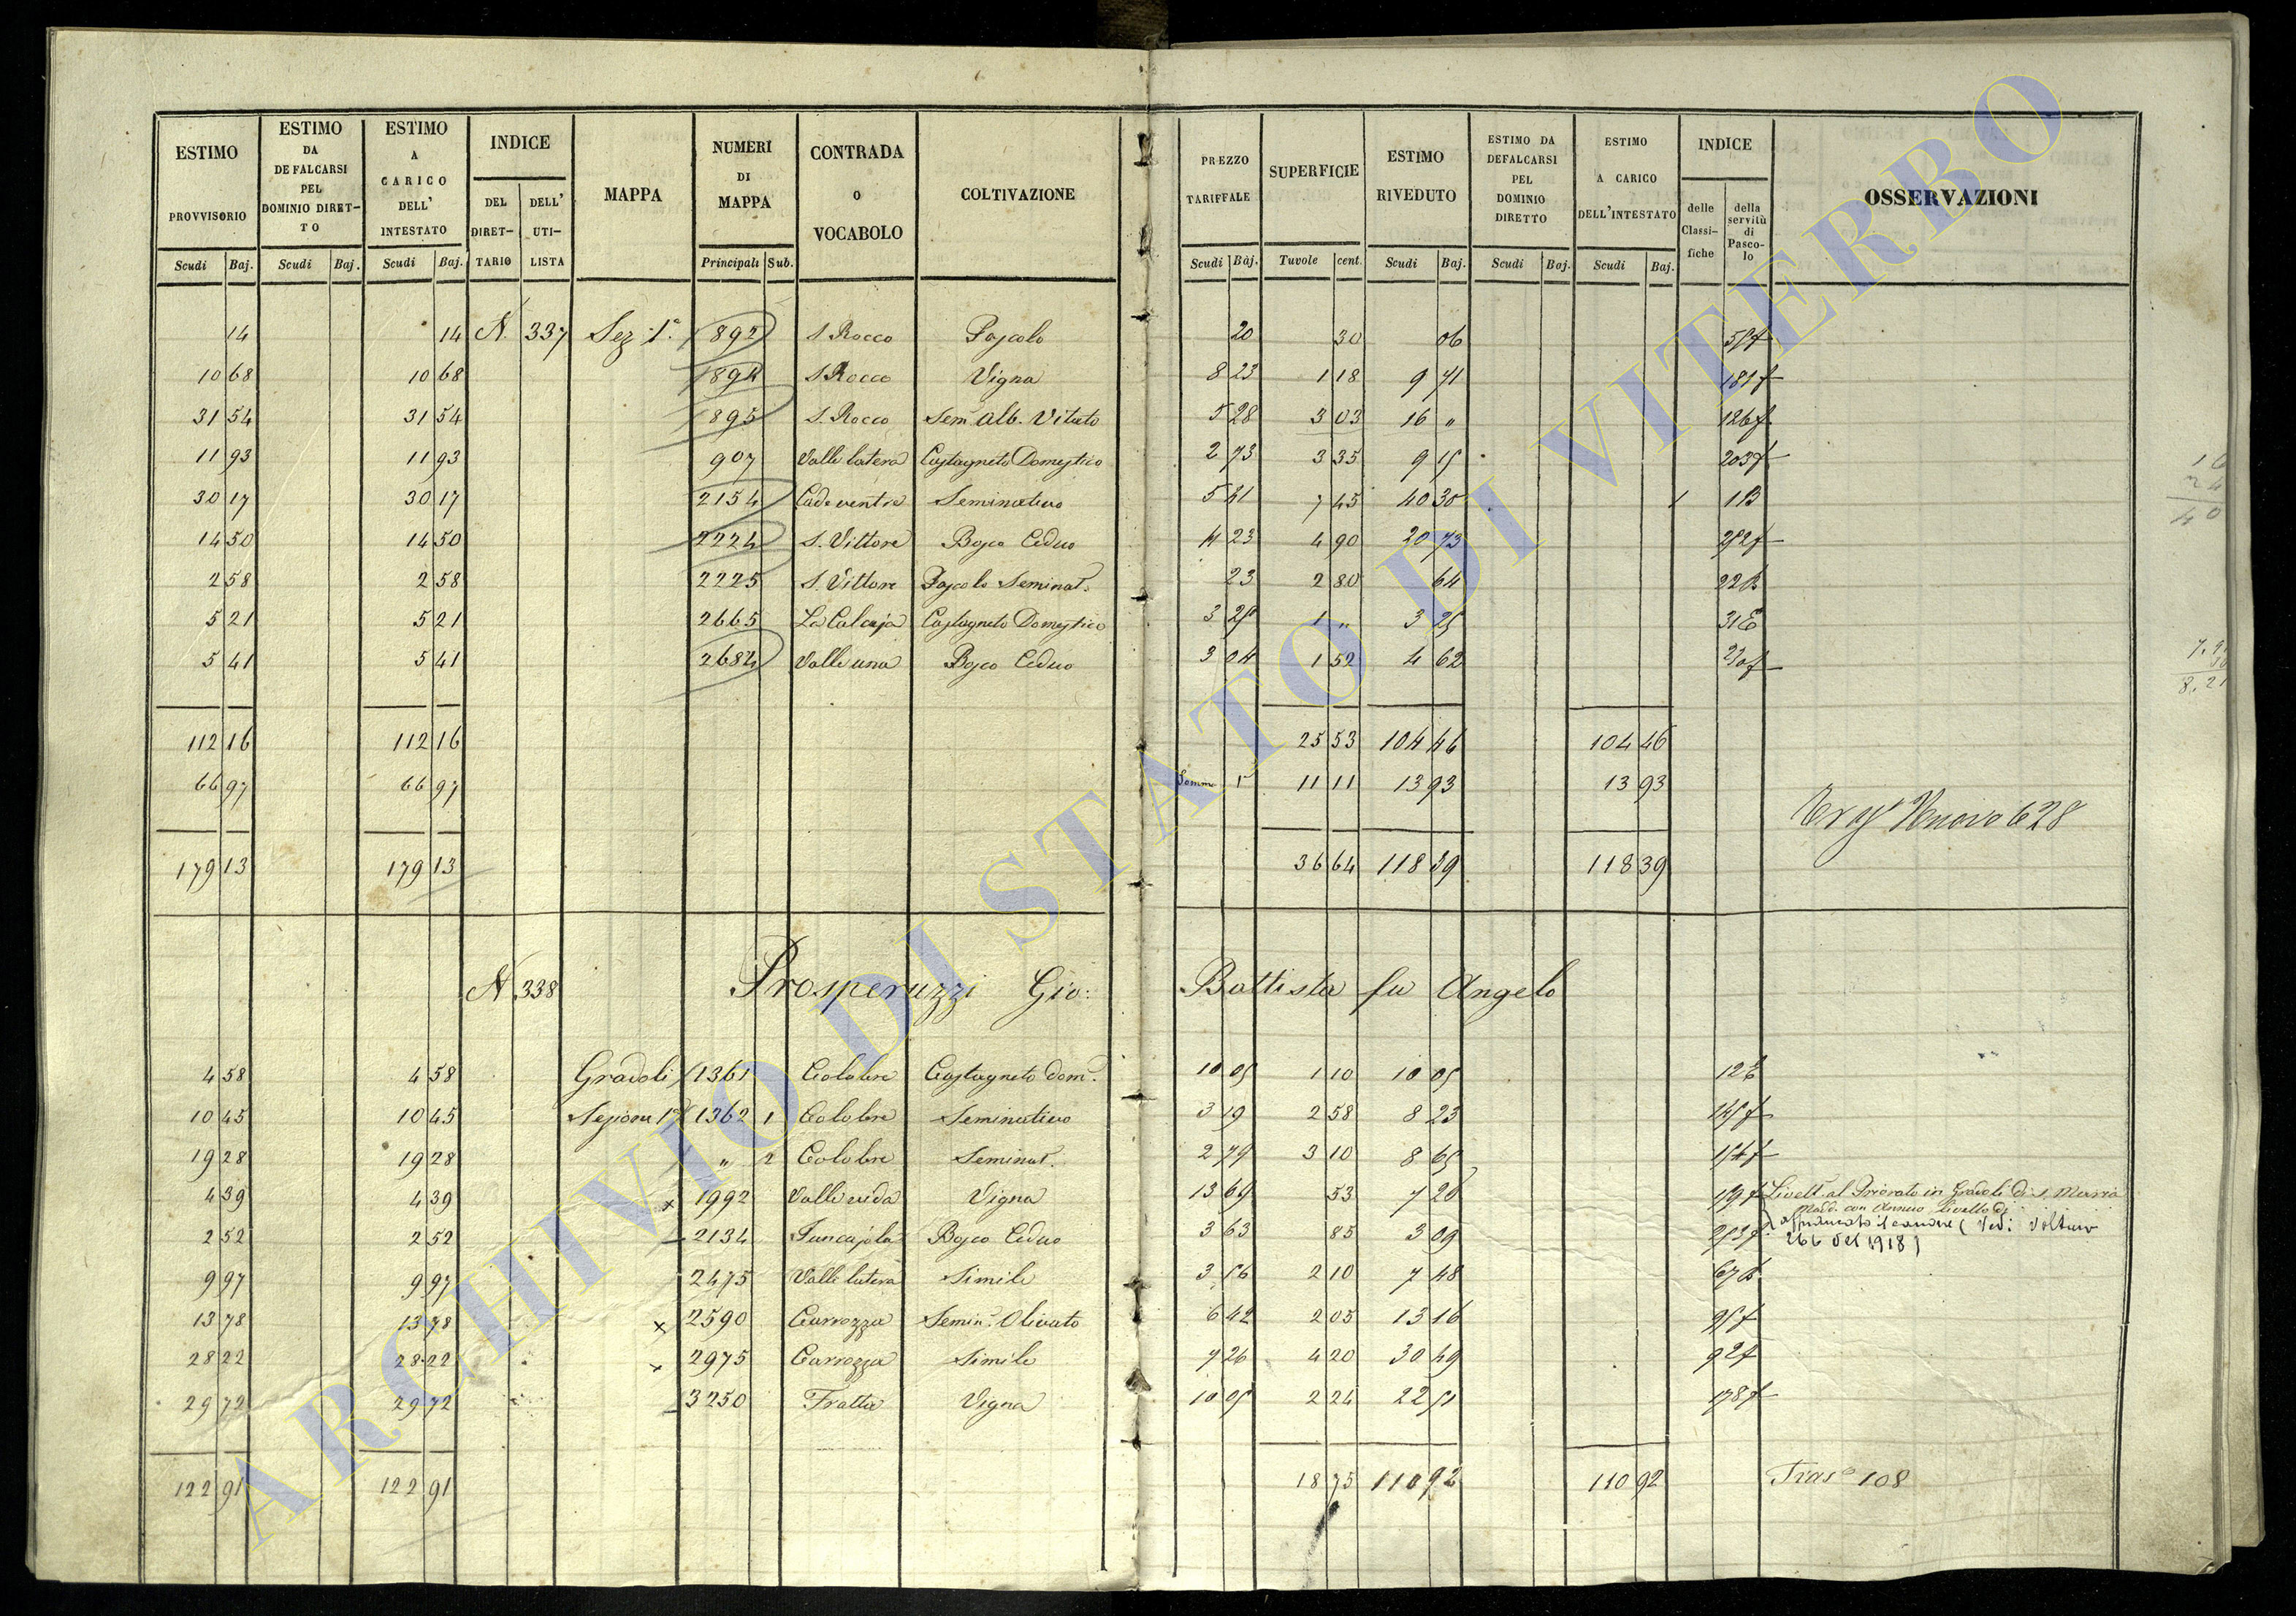 ESTIMO PROVVISORIO Scudi Baj.
ESTIMO DA DEFALCARSI PEL DOMINIO DIRET-TO Scudi Baj.
ESTIMO A CARICO DELL' INTESTATO Scudi Baj.
INDICE DEL DIRET-TARIO DELL' UTI-LISTA
MAPPA
NUMERI DI MAPPA Principali Sub.
CONTRADA O VOCABOLO
COLTIVAZIONE
PREZZO TARIFFALE Scudi Baj.
SUPERFICIE Tavole cent.
ESTIMO RIVEDUTO Scudi Baj.
ESTIMO DA DEFALCARSI PEL DOMINIO DIRETTO Scudi Baj.
ESTIMO A CARICO DELL'INTESTATO Scudi Baj.
INDICE delle Classi-fiche della servitù di Pasco-lo
OSSERVAZIONI
14 14 N. 337 Sez. 1ª 892 S. Rocco Pascolo 20 30 06
10 68 10 68 894 S. Rocco Vigna 8 23 1 18 9 71
31 54 31 54 895 S. Rocco Sem. Alb. Vitato 5 28 3 03 16 "
11 93 11 93 907 Valle latera Castagneto Domestico 2 73 3 35 9 15
30 17 30 17 2154 Seminativo 5 41 7 45 40 30
14 50 14 50 2224 S. Vittore Bosco Ceduo 4 23 4 90 20 73
2 58 2 58 2225 S. Vittore Pascolo Seminat. 23 2 80 64
5 21 5 21 2665 La Calcaja Castagneto Domestico 3 25 1 " 3 25
5 41 5 41 2684 Valle una Bosco Ceduo 3 04 1 52 4 62
112 16 112 16 25 53 104 46 104 46
66 97 66 97 Somma 11 11 13 93 13 93
628
179 13 179 13 36 64 118 39 118 39
N 338 Prosperuzzi Gio: Battista fu Angelo
4 58 4 58 Gradoli 1361 Colobre Castagneto dom. 1 10 10 05
10 45 10 45 Sezione 1ª 1362 1 Colobre Seminativo 3 19 2 58 8 23
19 28 19 28 " 2 Colobre Seminat. 2 79 3 10 8 65
4 39 4 39 x 1992 Vigna 13 69 53 7 26 Livell. al Priorato in Gradoli di S. Maria
Madd. con annuo livello di
2 52 2 52 2134 Bosco Ceduo 3 63 85 3 09 affrancato il canone (Vedi Volture
266 del 1918)
9 97 9 97 2475 Valle latera Simile 3 56 2 10 7 48
13 78 13 78 x 2590 Carrozza Semin. Olivato 6 42 2 05 13 16
28 22 28 22 x 2975 Carrozza Simile 7 26 4 20 30 49
29 72 29 72 3250 Fratta Vigna 10 05 2 24 22 51
122 91 122 91 18 75 110 92 110 92 Trasº 108
ARCHIVIO DI STATO DI VITERBO